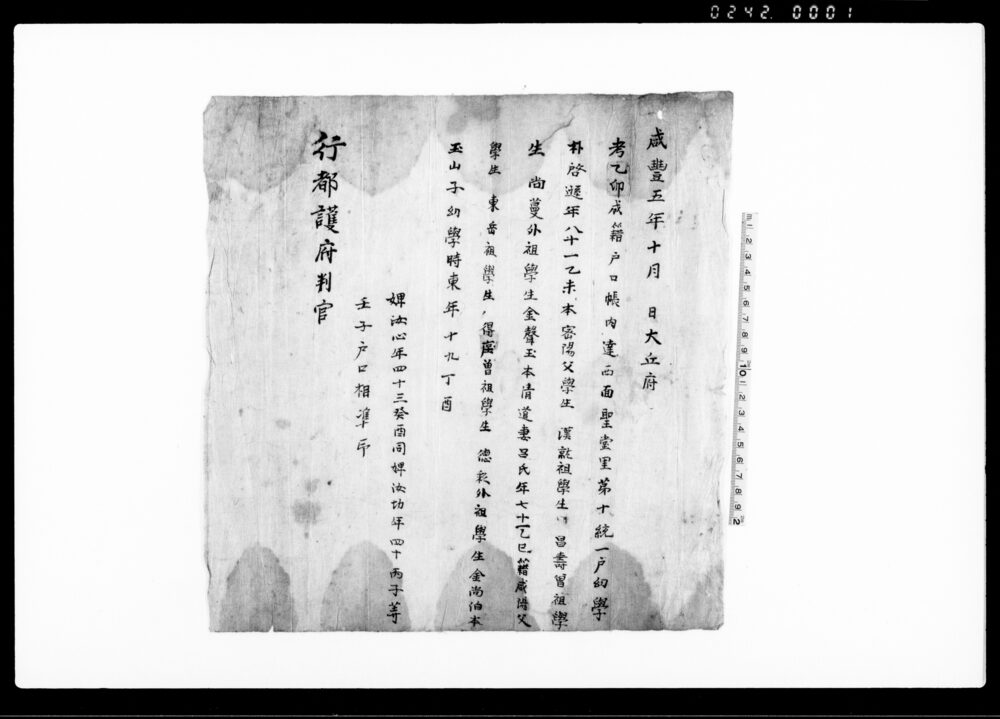 0242. 0001
咸豐五年十月 日大丘府
考乙卯成籍户口帳內達西面聖堂里第十統一户幼學
朴啓 年八十一乙未本密陽父學生 漢 祖學生 昌壽曾祖學
生 尚蔓外祖學生金聲玉本清道妻呂氏年七十一乙巳籍咸陽父
學生 東岳祖學生 得 曾祖學生 德彩外祖學生金尚 本
玉山子幼學時東年十九丁酉
婢汝心年四十三癸酉同婢汝功年四十丙子等
壬子户口相准印
行都護府判官